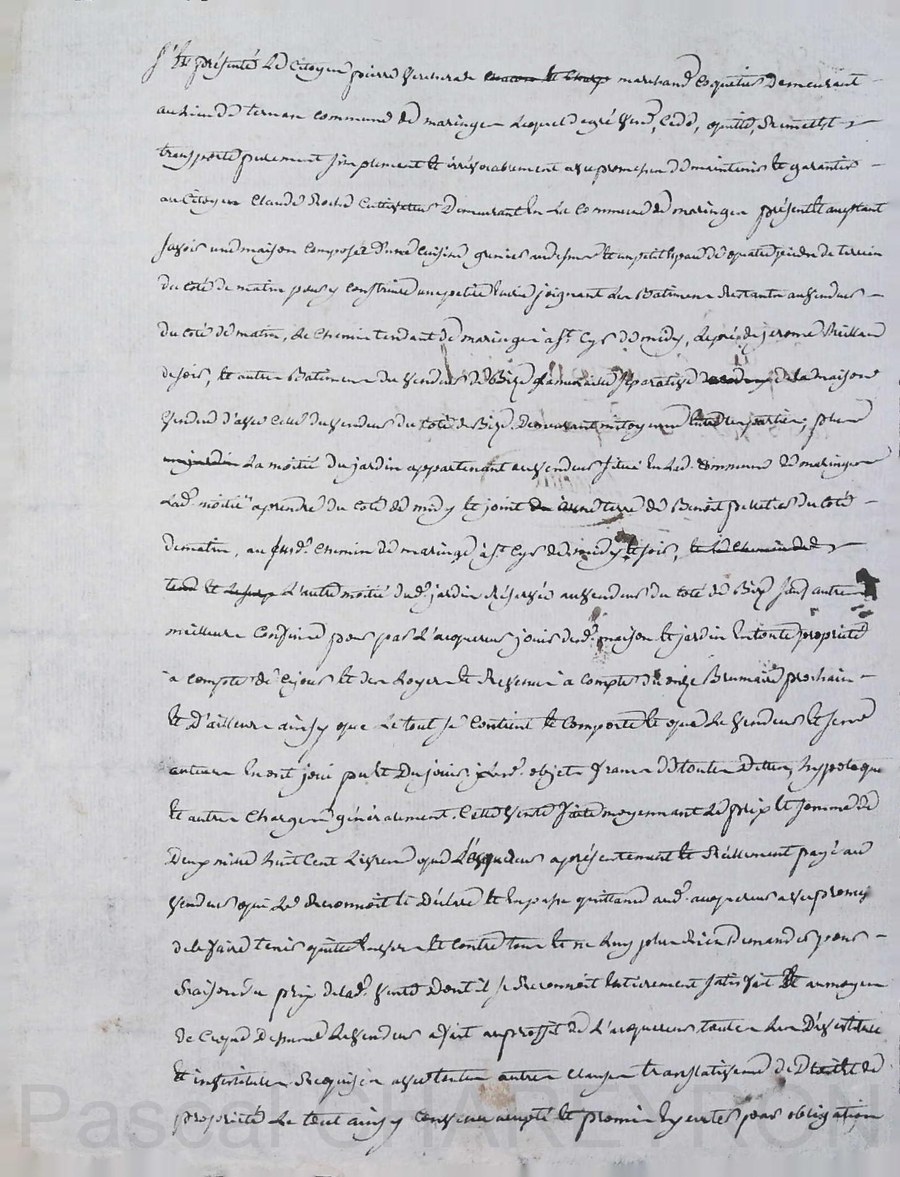 S'est présenté Le Citoyen pierre marchand Coquetier Demeurant
au lieu de ternan commune de maringe Lequel de gré vend, Cede, quitte, Remet et
transporte purement simplement et irrévocablement avec promesse de maintenir et garantir
au Citoyen Claude Cultivateur Demeurant en La Commune de maringe présent et acceptant
savoir une maison composée d'une Cuisine grenier au dessus et un petit espace de quatre pieds de terrein
du coté de matin pour y Construire une petite joignant Les Batimens Restants au vendeur
du coté de matin, Le Chemin tendant de maringe à St. Cyr de midy, Le pré de jerome
de soir, et autres Batimens du vendeur de Bize La muraille séparative de la maison
vendue d'avec Celle du vendeur du coté de Bize Demeurant mitoyenne entre les parties; plus
La moitié du jardin appartenant au vendeur situé en Lad. Commune de maringe
Lad. moitié a prendre du coté de midy et joint terre de Benoit pelletier du coté
de matin, au susd. Chemin de maringe à St Cyr de midy et soir,
L'autre moitié dud. jardin Réservée au vendeur du coté de Bize sauf autres
meilleurs Confins pour par L'acquereur jouir desd. maison et jardin en toute propriété
a compter de Cejour et des Loyers et Revenus a compter du onze Brumaire prochain
et D'ailleurs ainsy que Le tout se Contient et Comporte et que Le vendeur et ses
auteurs en ont joui pu et Du jouir, Lesd. objets francs de toutes Dettes, hypoteque
et autres Charges généralement. Cette vente faite moyennant Le prix et somme de
Deux mille huit Cent Livres que L'acquereur a présentement et Réellement payé au
vendeur qui Le Reconnoit Le Déclare et En passe quittance aud. acquereur avec promesse
de le faire tenir quitte envers et Contre tous et ne Luy plus Rien Demander pour
Raison du prix de lad. vente Dont il se Reconnoit Entierement satisfait Et au moyen
de Ce que Dessus Le vendeur a fait au proffit de L'acquereur toutes Les Devestitures
et investitures Requises avec toutes autres Clauses translatives de Droits et de
propriété Le tout ainsy Convenu accepté et promis Executer par obligation
Pascal CHAREYRON